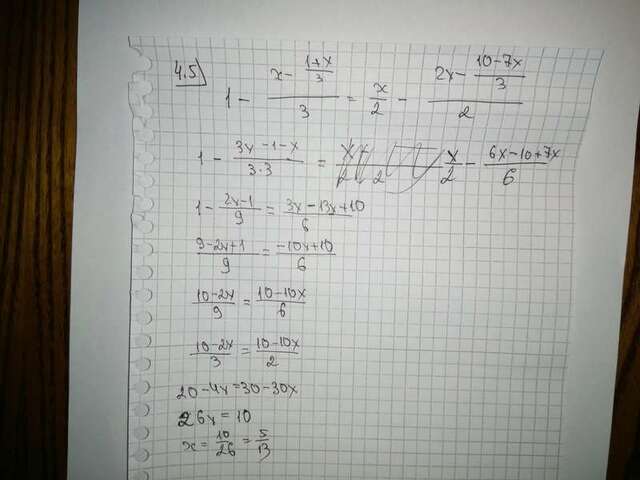 4.5
1 - (x - (1+x)/3)/3 = x/2 - (2x - (10-7x)/3)/2
1 - (3x-1-x)/(3·3) = x/2 - (6x-10+7x)/6
1 - (2x-1)/9 = (3x-13x+10)/6
(9-2x+1)/9 = (-10x+10)/6
(10-2x)/9 = (10-10x)/6
(10-2x)/3 = (10-10x)/2
20-4x=30-30x
26x=10
x = 10/26 = 5/13